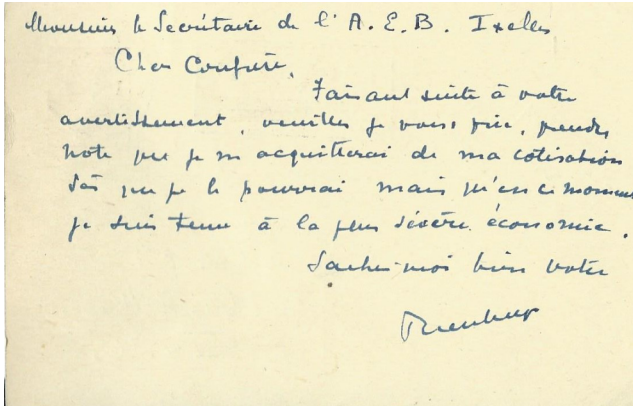 Monsieur le Secrétaire de l'A.E.B. Ixelles
Cher Confrère,
Faisant suite à votre
avertissement, veuillez je vous prie, prendre
note que je m'acquitterai de ma cotisation
dès que je le pourrai mais qu'en ce moment
je suis tenu à la plus sévère économie.
Sachez-moi bien votre